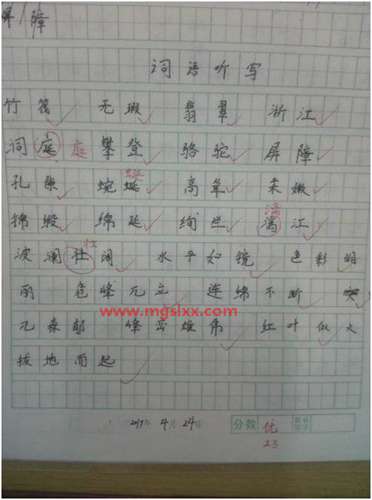 屏障
词语听写
竹筏 无瑕 翡翠 浙江
词庭 庭 攀登 骆驼 屏障
孔隙 蜿蜒 高耸 柔嫩
锦缎 绵延 绚烂 漓江 漓
波澜壮阔 壮 水平如镜 色彩明
丽 危峰兀立 连绵不断 突
兀森郁 峰峦雄伟 红叶似火
www.mgslxx.com
拔地而起
4月24日
分数 优